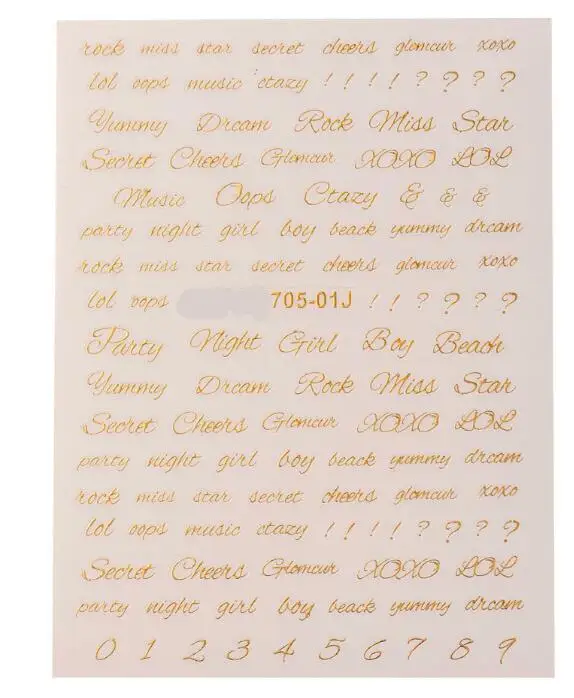 rock miss star secret cheers glemcur xoxo
lol oops music ctazy ! ! ! ! ? ? ? ?
Yummy Dream Rock Miss Star
Secret Cheers Glemcur XOXO LOL
Music Oops Ctazy & & &
party night girl boy beack yummy dream
rock miss star secret cheers glemcur xoxo
lol oops 705-01J ! ! ? ? ? ?
Party Night Girl Boy Beach
Yummy Dream Rock Miss Star
Secret Cheers Glemcur XOXO LOL
party night girl boy beack yummy dream
rock miss star secret cheers glemcur xoxo
lol oops music ctazy ! ! ! ! ? ? ? ?
Secret Cheers Glemcur XOXO LOL
party night girl boy beack yummy dream
0 1 2 3 4 5 6 7 8 9